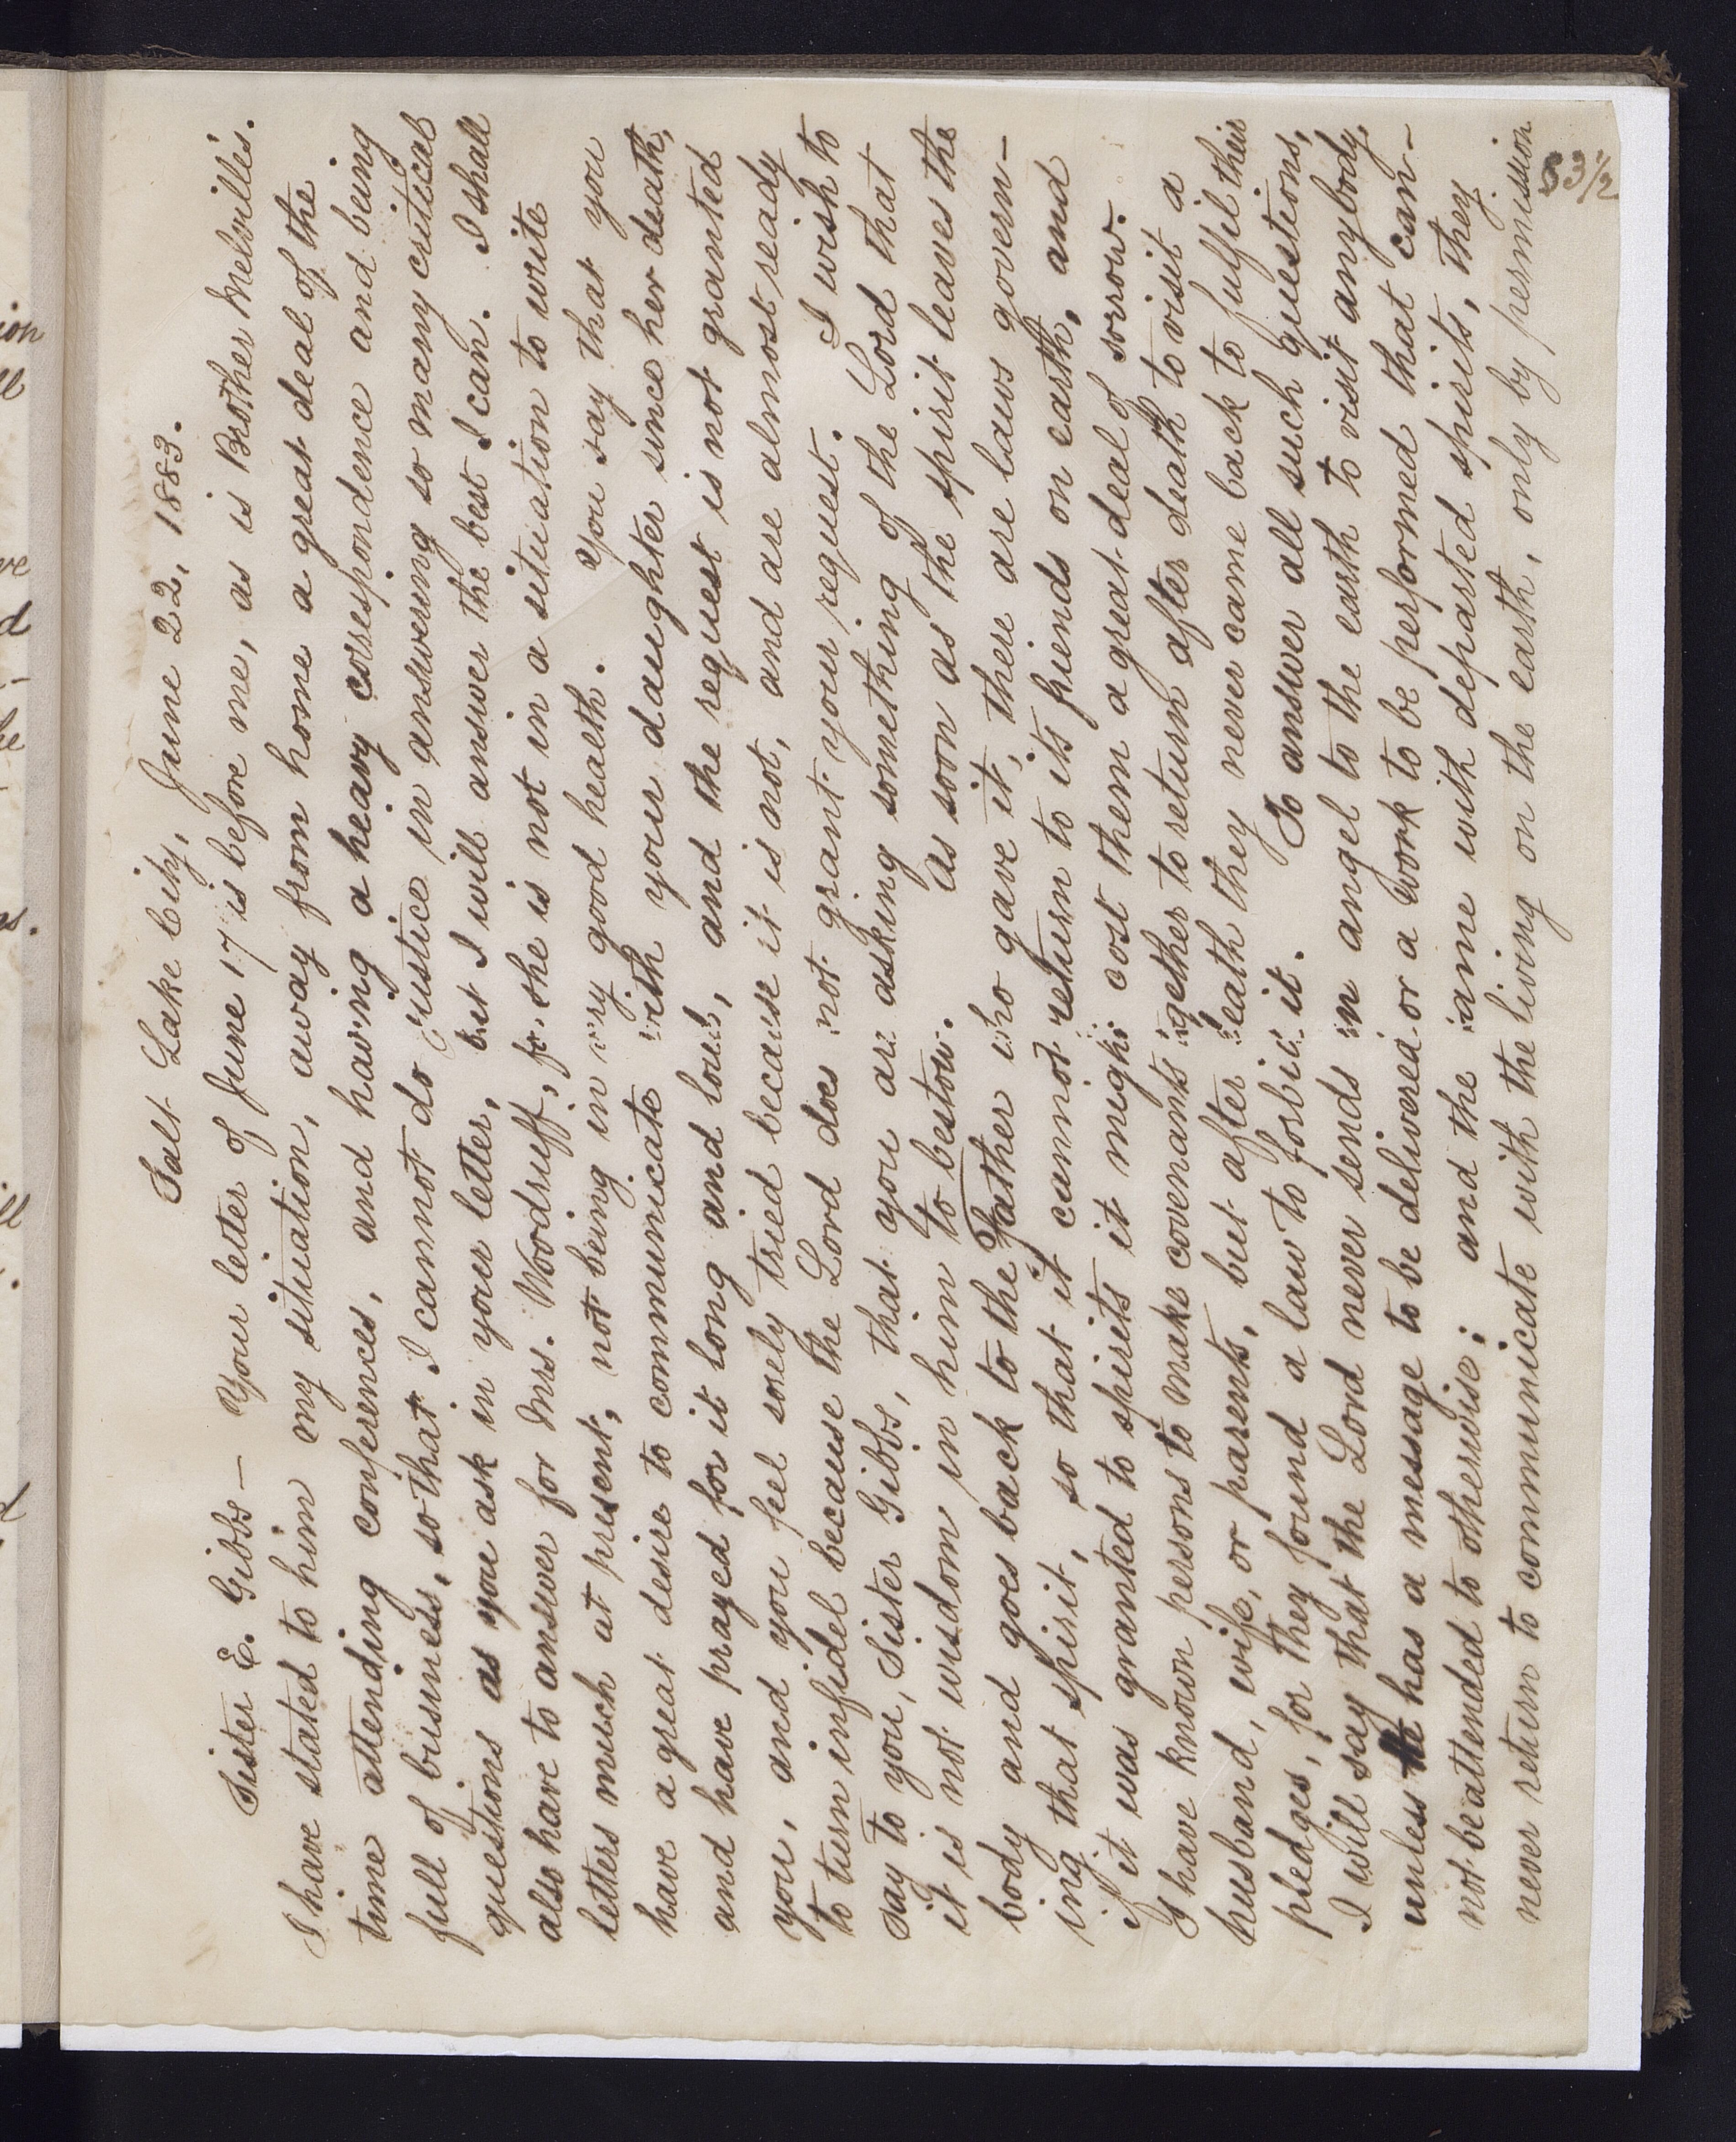 Salt Lake City, June 22, 1883.
Sister E. Gibbs — Your letter of June 17 is before me, as is Brother Melville's.
I have stated to him my situation, away from home a great deal of the
time attending conferences, and having a heavy correspondence and being
full of business, so that I cannot do justice in answering so many critical
questions as you ask in your letter, but I will answer the best I can. I shall
also have to answer for Mrs. Woodruff, for she is not in a situation to write
letters much at present, not being in very good health. You say that you
have a great desire to communicate with your daughter since her death,
and have prayed for it long and loud, and the request is not granted
you, and you feel sorely tried because it is not, and are almost ready
to turn infidel because the Lord does not grant your request. I wish to
say to you, Sister Gibbs, that you are asking something of the Lord that
it is not wisdom in him to bestow. As soon as the spirit leaves the
body and goes back to the Father who gave it, there are laws govern-
ing that spirit, so that it cannot return to its friends on earth, and
if it was granted to spirits it might cost them a great deal of sorrow.
I have known persons to make covenants together to return after death to visit a
husband, wife, or parents, but after death they never came back to fulfil their
pledges, for they found a law to forbid it. To answer all such questions,
I will say that the Lord never sends an angel to the earth to visit anybody,
unless he has a message to be delivered or a work to be performed that can-
not be attended to otherwise; and the same with departed spirits, they
never return to communicate with the living on the earth, only by permission
53 1/2
ion
ll
ve
d
he
s.
ll